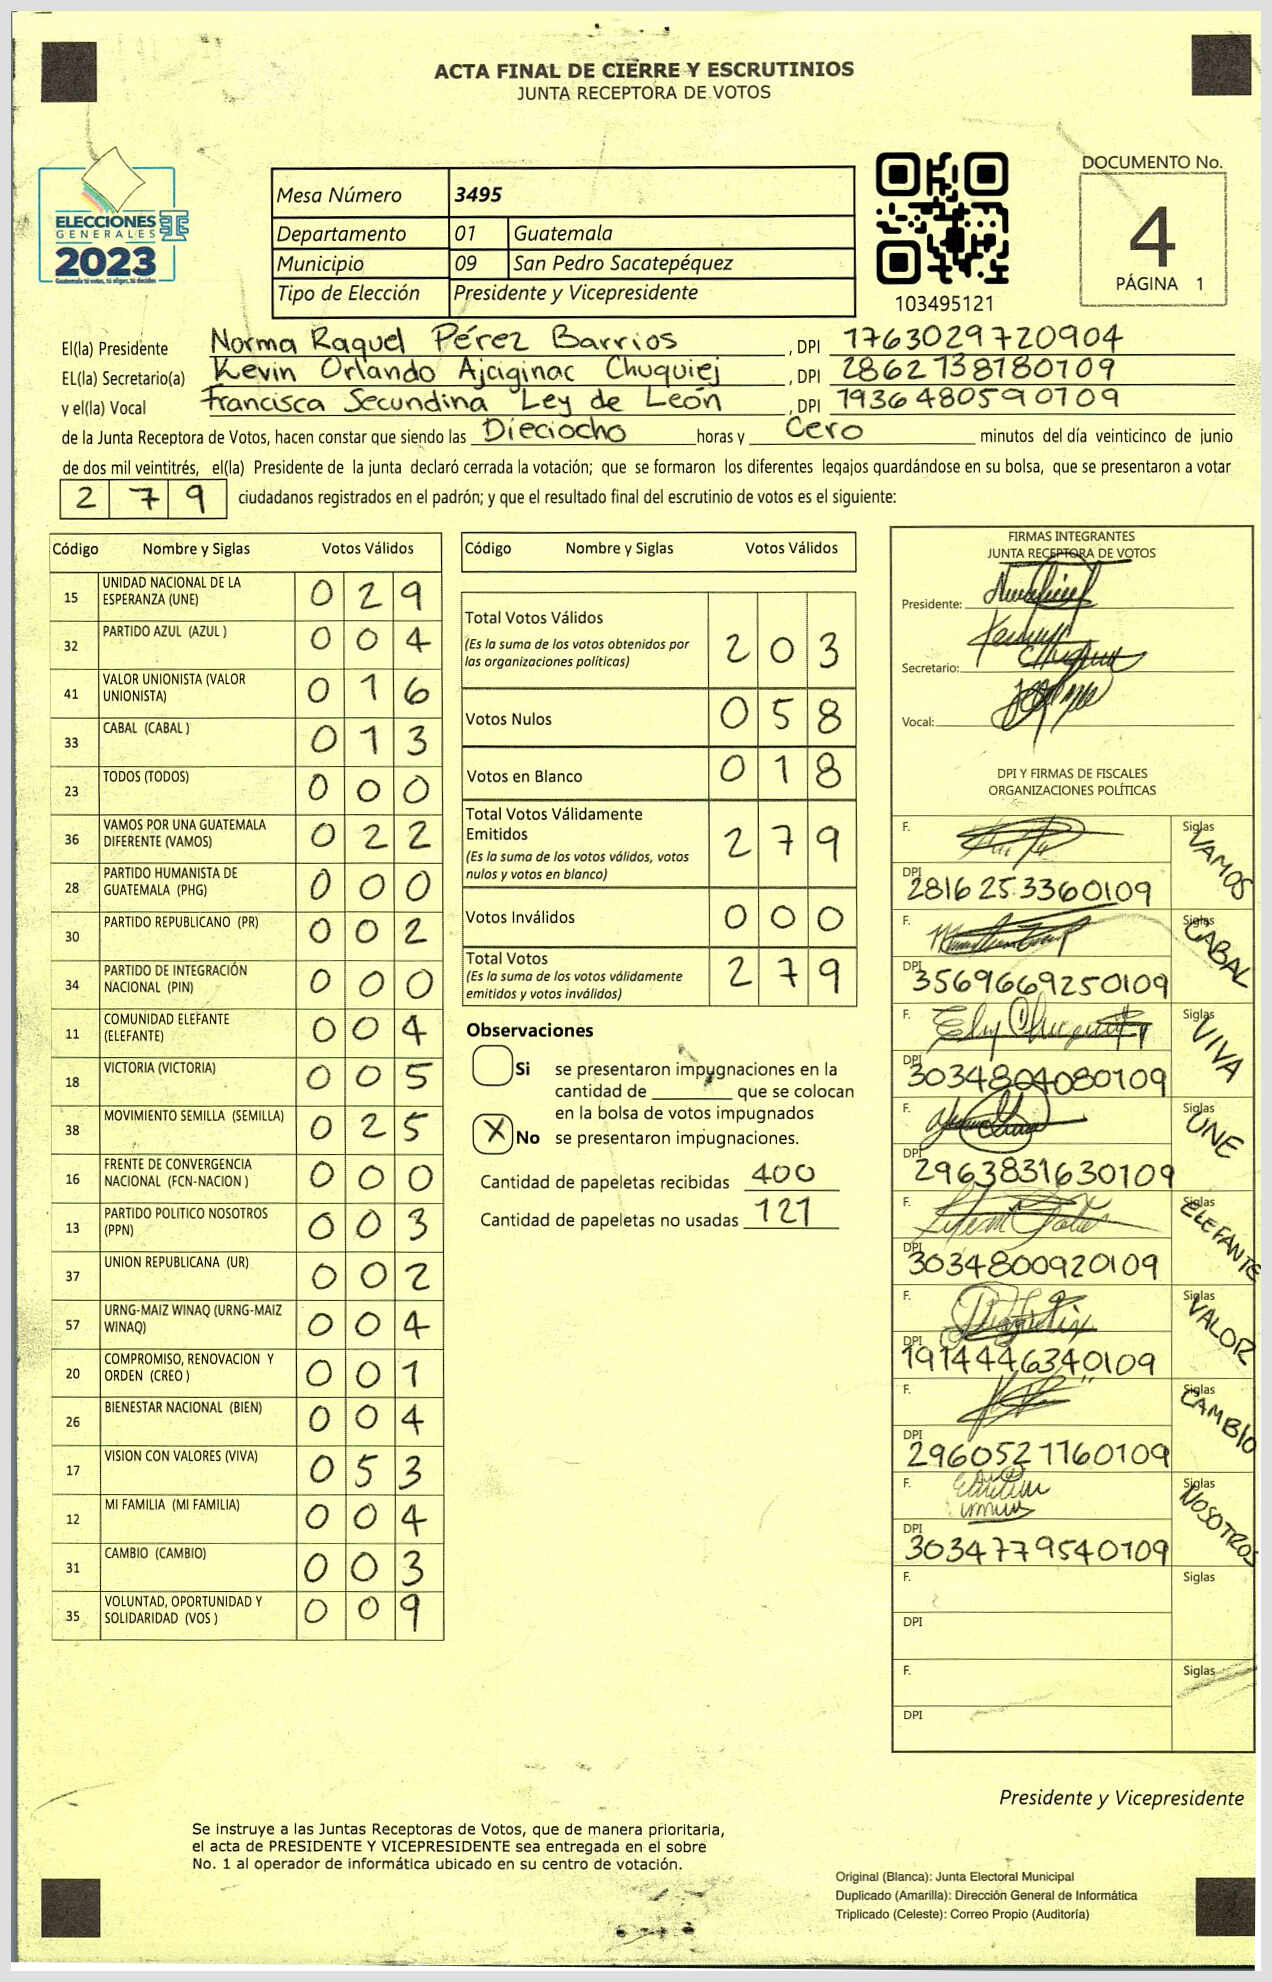 ACTA FINAL DE CIERRE Y ESCRUTINIOS
JUNTA RECEPTORA DE VOTOS
ELECCIONES
GENERALES
2023
Guatemala tú votas, tú eliges, tú decides
Mesa Número 3495
Departamento 01 Guatemala
Municipio 09 San Pedro Sacatepéquez
Tipo de Elección Presidente y Vicepresidente
103495121
DOCUMENTO No.
4
PÁGINA 1
El(la) Presidente Norma Raquel Pérez Barrios, DPI 1763029720904
EL(la) Secretario(a) Kevin Orlando Ajciginac Chuquiej, DPI 2862738780109
y el(la) Vocal Francisca Secundina Ley de León, DPI 1936480590109
de la Junta Receptora de Votos, hacen constar que siendo las Dieciocho horas y Cero minutos del día veinticinco de junio
de dos mil veintitrés, el(la) Presidente de la junta declaró cerrada la votación; que se formaron los diferentes legajos guardándose en su bolsa, que se presentaron a votar
2 7 9 ciudadanos registrados en el padrón; y que el resultado final del escrutinio de votos es el siguiente:
Código Nombre y Siglas Votos Válidos
15 UNIDAD NACIONAL DE LA ESPERANZA (UNE) 0 2 9
32 PARTIDO AZUL (AZUL ) 0 0 4
41 VALOR UNIONISTA (VALOR UNIONISTA) 0 1 6
33 CABAL (CABAL ) 0 1 3
23 TODOS (TODOS) 0 0 0
36 VAMOS POR UNA GUATEMALA DIFERENTE (VAMOS) 0 2 2
28 PARTIDO HUMANISTA DE GUATEMALA (PHG) 0 0 0
30 PARTIDO REPUBLICANO (PR) 0 0 2
34 PARTIDO DE INTEGRACIÓN NACIONAL (PIN) 0 0 0
11 COMUNIDAD ELEFANTE (ELEFANTE) 0 0 4
18 VICTORIA (VICTORIA) 0 0 5
38 MOVIMIENTO SEMILLA (SEMILLA) 0 2 5
16 FRENTE DE CONVERGENCIA NACIONAL (FCN-NACION ) 0 0 0
13 PARTIDO POLITICO NOSOTROS (PPN) 0 0 3
37 UNION REPUBLICANA (UR) 0 0 2
57 URNG-MAIZ WINAQ (URNG-MAIZ WINAQ) 0 0 4
20 COMPROMISO, RENOVACION Y ORDEN (CREO ) 0 0 1
26 BIENESTAR NACIONAL (BIEN) 0 0 4
17 VISION CON VALORES (VIVA) 0 5 3
12 MI FAMILIA (MI FAMILIA) 0 0 4
31 CAMBIO (CAMBIO) 0 0 3
35 VOLUNTAD, OPORTUNIDAD Y SOLIDARIDAD (VOS ) 0 0 9
Código Nombre y Siglas Votos Válidos
Total Votos Válidos 2 0 3
(Es la suma de los votos obtenidos por
las organizaciones políticas)
Votos Nulos 0 5 8
Votos en Blanco 0 1 8
Total Votos Válidamente
Emitidos 2 7 9
(Es la suma de los votos válidos, votos
nulos y votos en blanco)
Votos Inválidos 0 0 0
Total Votos 2 7 9
(Es la suma de los votos válidamente
emitidos y votos inválidos)
Observaciones
Si se presentaron impugnaciones en la
cantidad de ________ que se colocan
en la bolsa de votos impugnados
X No se presentaron impugnaciones.
Cantidad de papeletas recibidas 400
Cantidad de papeletas no usadas 121
FIRMAS INTEGRANTES
JUNTA RECEPTORA DE VOTOS
Presidente:
Secretario:
Vocal:
DPI Y FIRMAS DE FISCALES
ORGANIZACIONES POLÍTICAS
F. Siglas VAMOS
DPI 2816253360109
F. Siglas CABAL
DPI 3569669250109
F. Siglas VIVA
DPI 3034804080109
F. Siglas UNE
DPI 2963831630109
F. Siglas ELEFANTE
DPI 3034800920109
F. Siglas VALOR
DPI 1914446340109
F. Siglas CAMBIO
DPI 2960521760109
F. Siglas NOSOTROS
DPI 3034779540109
F. Siglas
DPI
F. Siglas
DPI
Presidente y Vicepresidente
Se instruye a las Juntas Receptoras de Votos, que de manera prioritaria,
el acta de PRESIDENTE Y VICEPRESIDENTE sea entregada en el sobre
No. 1 al operador de informática ubicado en su centro de votación.
Original (Blanca): Junta Electoral Municipal
Duplicado (Amarilla): Dirección General de Informática
Triplicado (Celeste): Correo Propio (Auditoría)